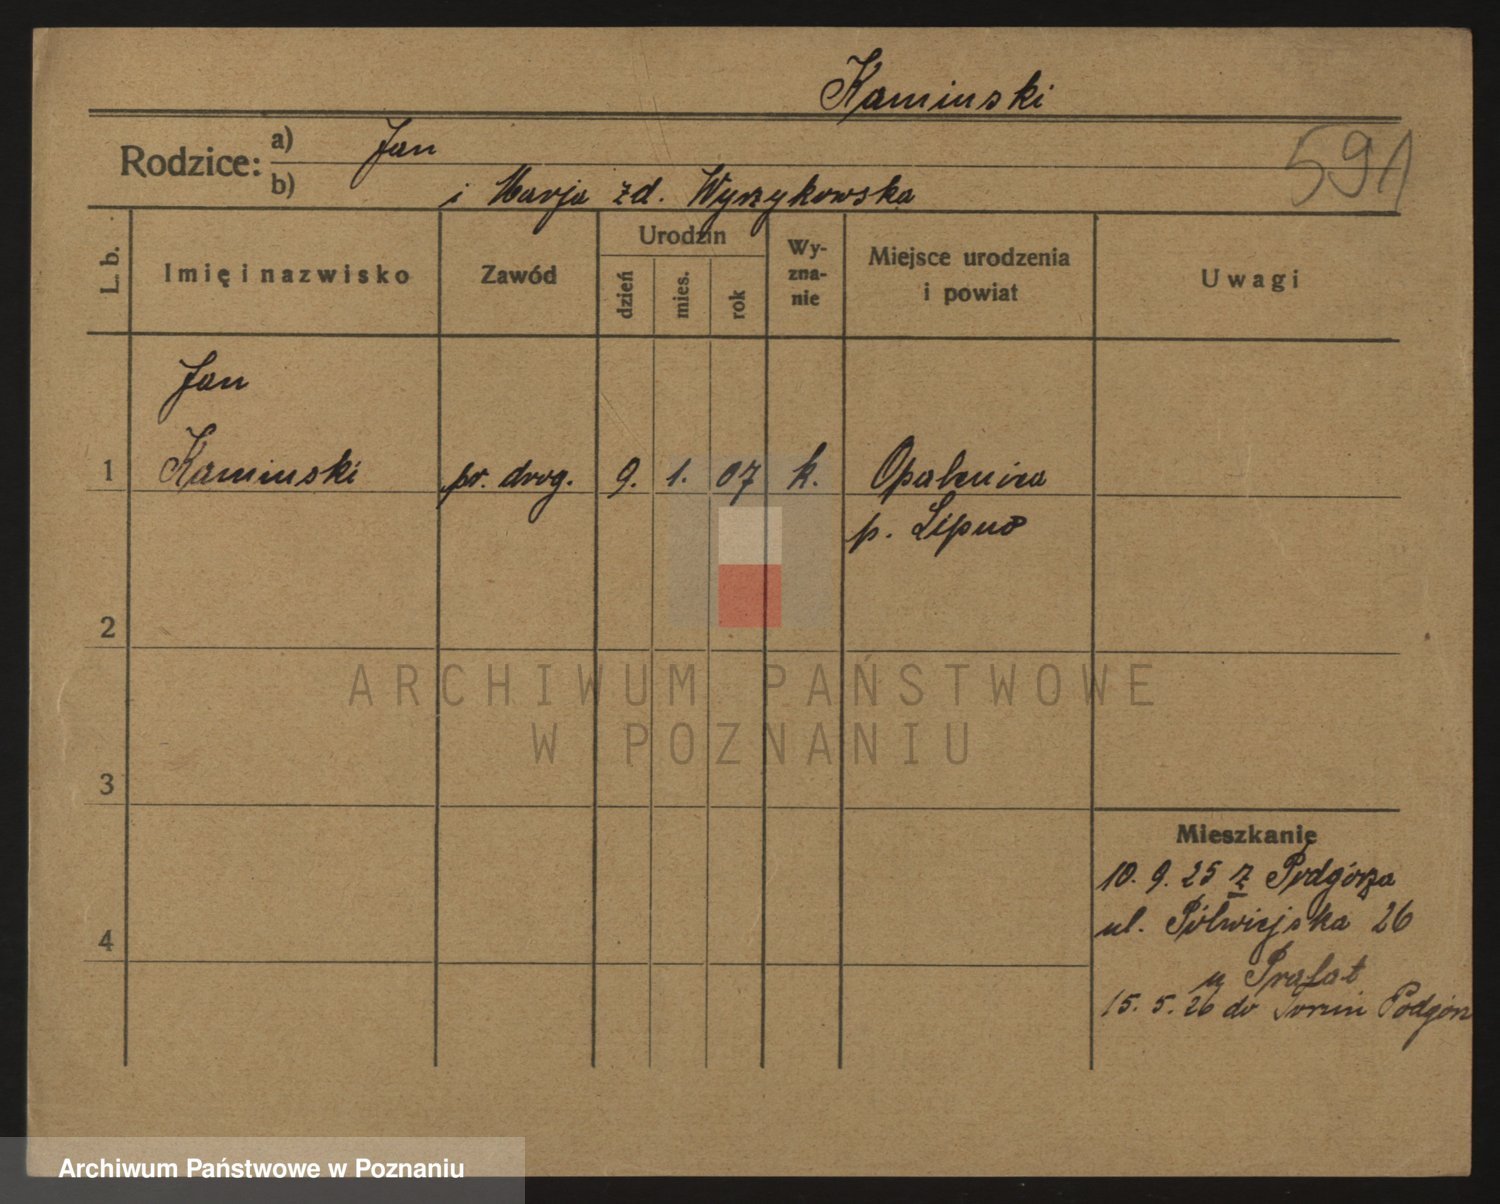 Kaminski
Rodzice:
a) Jan
b) i Marja zd. Wyrzykowska
591
L. b.
Imię i nazwisko
Zawód
Urodzin
dzień
mies.
rok
Wy-
zna-
nie
Miejsce urodzenia
i powiat
Uwagi
Jan
1 Kaminski pr. drog. 9. 1. 07 k. Opalenica
p. Lipno
2
3
4
Mieszkanie
10. 9. 25 z Podgórza
ul. Półwiejska 26
u Prałat
15. 5. 26 do Toruń Podgórz
ARCHIWUM PAŃSTWOWE
W POZNANIU
Archiwum Państwowe w Poznaniu